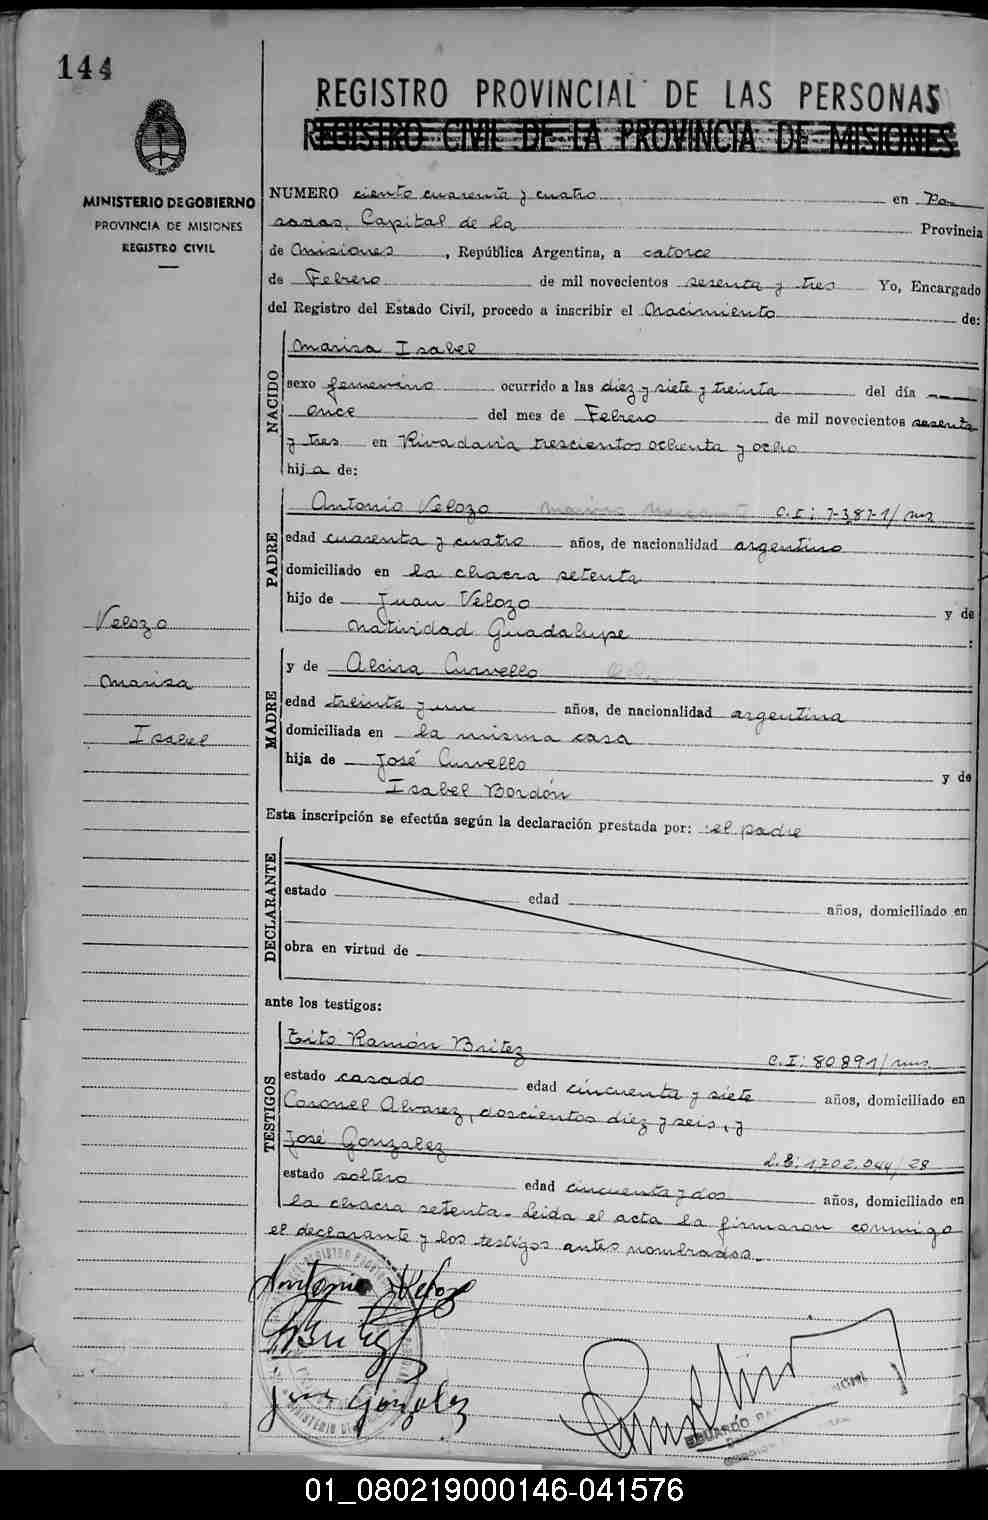 144
REGISTRO PROVINCIAL DE LAS PERSONAS
REGISTRO CIVIL DE LA PROVINCIA DE MISIONES
MINISTERIO DE GOBIERNO
PROVINCIA DE MISIONES
REGISTRO CIVIL
NUMERO ciento cuarenta y cuatro en Po-
sadas, Capital de la Provincia
de Misiones, República Argentina, a catorce
de Febrero de mil novecientos sesenta y tres Yo, Encargado
del Registro del Estado Civil, procedo a inscribir el Nacimiento de:
NACIDO
Marisa Isabel
sexo femenino ocurrido a las diez y siete y treinta del día
once del mes de Febrero de mil novecientos sesenta
y tres en Rivadavia trescientos ochenta y ocho
hija de:
PADRE
Antonio Velozo C.I: 7.387-1/ms
edad cuarenta y cuatro años, de nacionalidad argentino
domiciliado en la chacra setenta
hijo de Juan Velozo y de
Natividad Guadalupe :
Velozo
Marisa
Isabel
MADRE
y de Alcira Curvello
edad treinta y un años, de nacionalidad argentina
domiciliada en la misma casa
hija de José Curvello y de
Isabel Bordón
Esta inscripción se efectúa según la declaración prestada por: el padre
DECLARANTE
estado edad años, domiciliado en
obra en virtud de
ante los testigos:
TESTIGOS
Tito Ramón Britez C.I: 80891/ms
estado casado edad cincuenta y siete años, domiciliado en
Coronel Alvarez, doscientos diez y seis, y
José Gonzalez L.E: 1.702.044/28
estado soltero edad cincuenta y dos años, domiciliado en
la chacra setenta. Leida el acta la firmaron conmigo
el declarante y los testigos antes nombrados.
Antonio Velozo
Britez
José González
EDUARDO
01_080219000146-041576